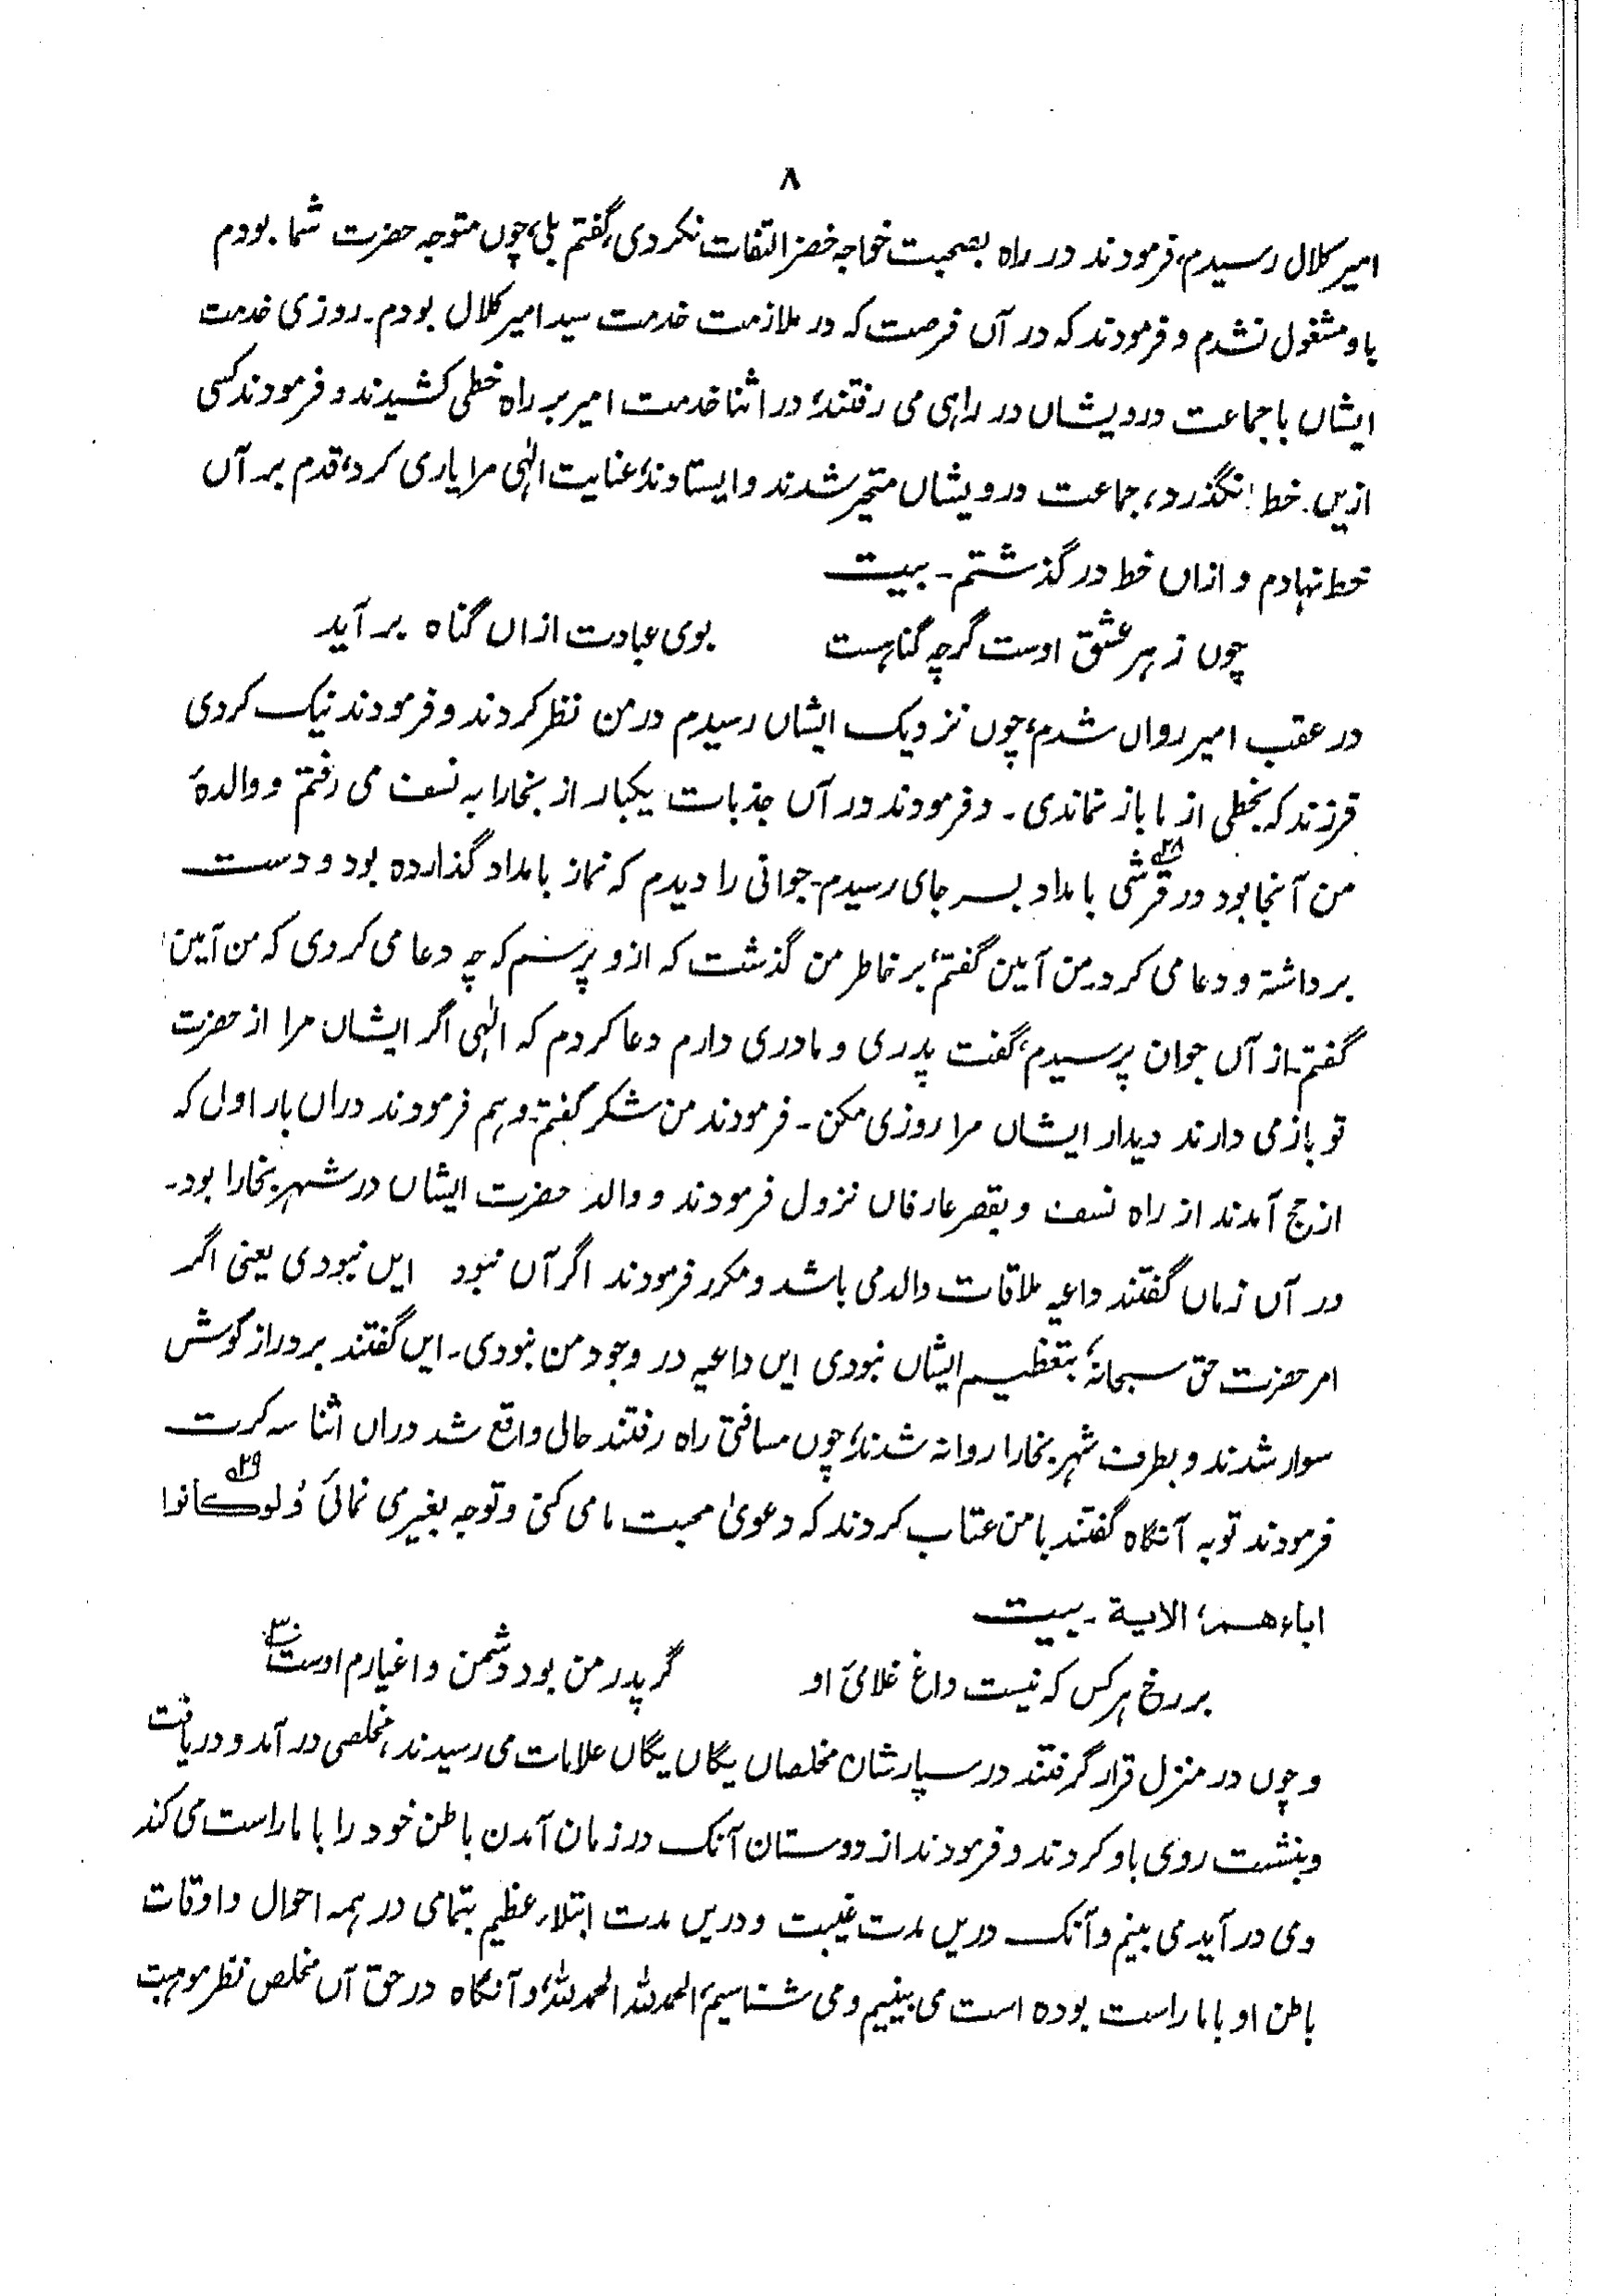 ۸
امیر کلال رسیدم، فرمودند در راہ بصحبت خواجہ خضر التفات نکردی، گفتم بلی، چوں متوجہ حضرت شما بودم
باو مشغول نشدم و فرمودند کہ در آں فرصت کہ در ملازمت خدمت سید امیر کلال بودم۔ روزی خدمت
ایشاں با جماعت درویشاں در راہی می رفتند، در اثنا خدمت امیر بر راہ خطی کشیدند و فرمودند کسی
ازیں خط نگذرد، جماعت درویشاں متحیر شدند و ایستادند، عنایت الٰہی مرا یاری کرد، قدم بر آں
خط نہادم و ازاں خط در گذشتم۔ بیت
چوں ز بہر عشق اوست گرچہ گناہست        بوی عبادت ازاں گناہ بر آید
در عقب امیر رواں شدم، چوں نزدیک ایشاں رسیدم در من نظر کردند و فرمودند نیک کردی
فرزند کہ بخطی از ما باز نماندی۔ و فرمودند در آں جذبات یکبار از بخارا بہ نسف می رفتم و والدۂ
من آنجا بود در قرشی۲۸ بامداد بسر جای رسیدم۔ جوانی را دیدم کہ نماز بامداد گذاردہ بود و دست
برداشتہ و دعا می کرد۔ من آمین گفتم، بر خاطر من گذشت کہ ازو پرسم کہ چہ دعا می کردی کہ من آمین
گفتم۔ از آں جوان پرسیدم، گفت پدری و مادری دارم دعا کردم کہ الٰہی اگر ایشاں مرا از حضرت
تو باز می دارند دیدار ایشاں مرا روزی مکن۔ فرمودند من شکر گفتم۔ و ہم فرمودند دراں بار اول کہ
از حج آمدند از راہ نسف و بقصر عارفاں نزول فرمودند و والد حضرت ایشاں در شہر بخارا بود۔
در آں زماں گفتند داعیہ ملاقات والد می باشد و مکرر فرمودند اگر آں نبود ایں نبودی یعنی اگر
امر حضرت حق سبحانہٗ بتعظیم ایشاں نبودی ایں داعیہ در وجود من نبودی۔ ایں گفتند بر دراز گوش
سوار شدند و بطرف شہر بخارا روانہ شدند، چوں مسافتی راہ رفتند حالی واقع شد دراں اثنا سہ کرت
فرمودند توبہ آنگاہ گفتند با من عتاب کردند کہ دعویٰ محبت ما می کنی و توجہ بغیر می نمائی وَلوکانوا۲۹
اباءھم، الایة۔ بیت
بر رخ ہر کس کہ نیست داغ غلامی او        گر پدر من بود دشمن و اغیارم اوست۳۰
و چوں در منزل قرار گرفتند در سپارشان مخلصاں یگاں یگاں علامات می رسیدند، مخلصی در آمد و دریافت
و بنشست روی باو کردند و فرمودند از دوستان آنک در زمان آمدن باطن خود را با ما راست می کند
وی در آید می بینم و آنک دریں مدت غیبت و دریں مدت ابتلاء عظیم بتمامی در ہمہ احوال و اوقات
باطن او با ما راست بودہ است می بینیم و می شناسیم، الحمدللہ الحمدللہ، و آنگاہ در حق آں مخلص نظر موہبت